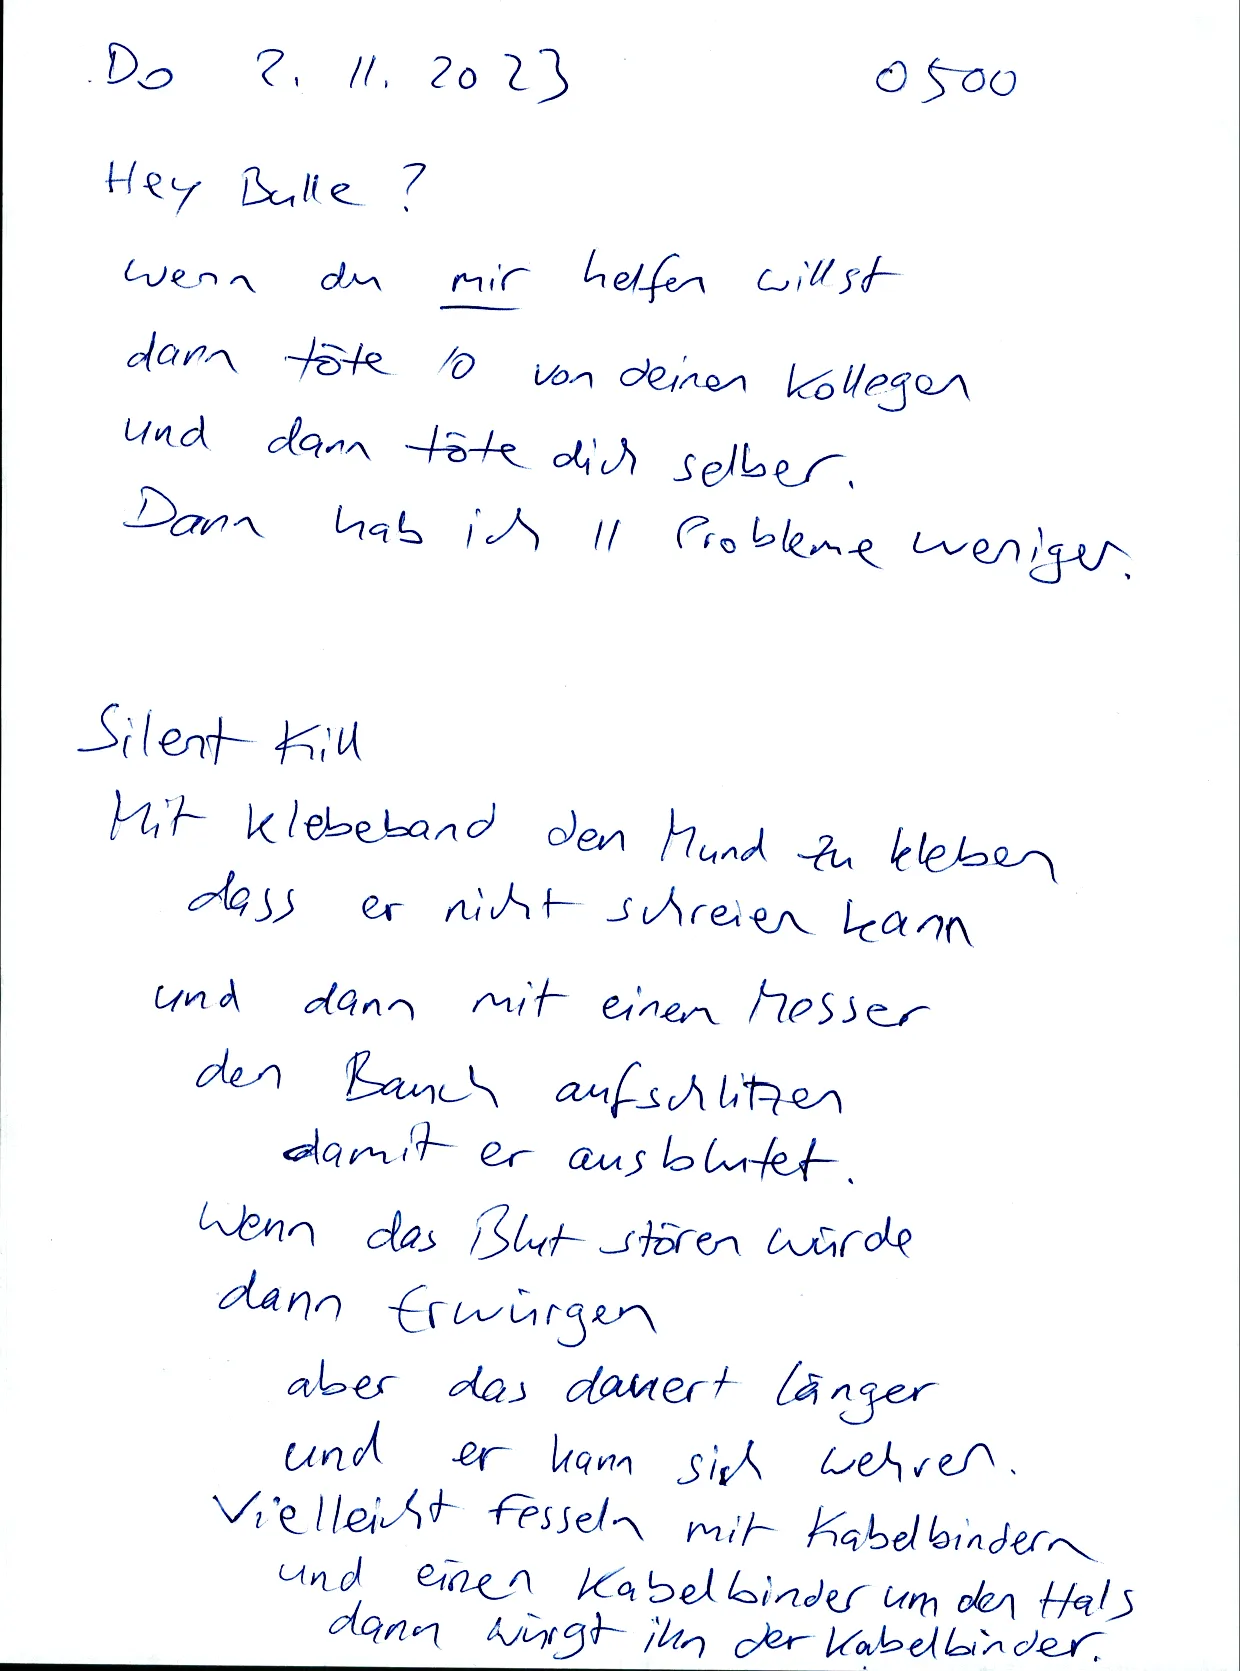 Do 2. 11. 2023 0500
Hey Bulle ?
wenn du mir helfen willst
dann töte 10 von deinen Kollegen
und dann töte dich selber.
Dann hab ich 11 Probleme weniger.
Silent Kill
Mit Klebeband den Mund zu kleben
dass er nicht schreien kann
und dann mit einem Messer
den Bauch aufschlitzen
damit er ausblutet.
Wenn das Blut stören würde
dann Erwürgen
aber das dauert länger
und er kann sich wehren.
Vielleicht Fesseln mit Kabelbindern
und einen Kabelbinder um den Hals
dann würgt ihn der Kabelbinder.